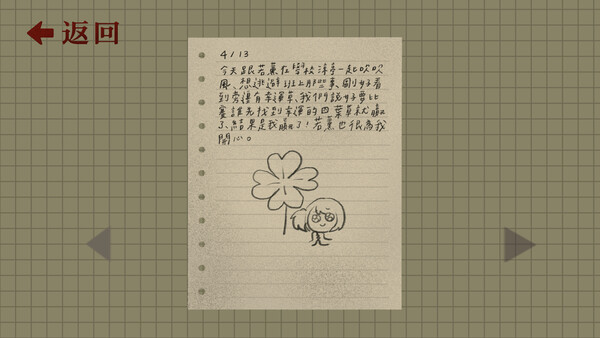 返回
4/13
今天跟若薰在學校涼亭一起吹吹
風、想逃避班上的鳥事、剛好看
到旁邊有幸運草、我們說好要比
賽誰先找到幸運的四葉草就贏
了、結果是我贏了！若薰也很為我
開心。